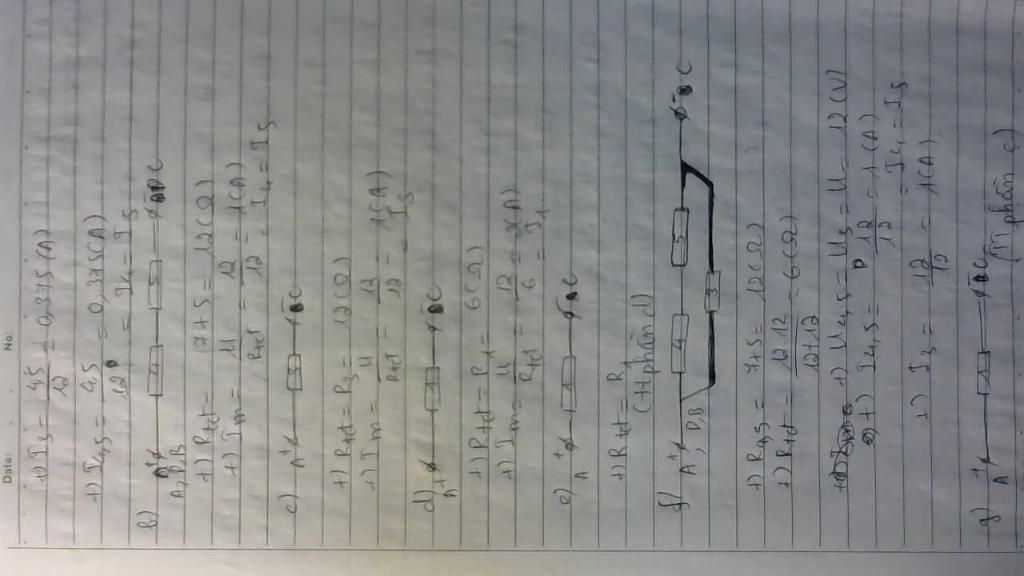 Date: No:
+) I3 = 4,5/12 = 0,375 (A)
+) I4,5 = 4,5/12 = 0,375 (A)
= I4 = I5
b) A+ 4 5 C
A, D, B
+) Rtđ = 7+5 = 12 (Ω)
+) Im = U/Rtđ = 12/12 = 1 (A)
= I4 = I5
c) A+ 3 - C
+) Rtđ = R3 = 12 (Ω)
+) Im = U/Rtđ = 12/12 = 1 (A)
= I3
d) A+ 1 - C
+) Rtđ = R1 = 6 (Ω)
+) Im = U/Rtđ = 12/6 = 2 (A)
= I1
e) A + 1 - C
+) Rtđ = R1
(TT phần d)
f) A+ 4 5 - C
, D,B
3
+) R4,5 = 7+5 = 12 (Ω)
+) Rtđ = 12.12/12+12 = 6 (Ω)
+) U4,5 = U3 = U = 12 (V)
+) I4,5 = 12/12 = 1 (A)
= I4 = I5
+) I3 = 12/12 = 1 (A)
g) A + 1 - C
phần e)